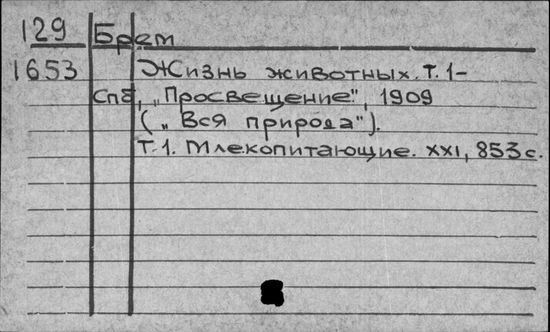 129 Брем
1653 Жизнь животных. Т. 1-
Спб, „Просвещение", 1909
(„Вся природа").
Т. 1. Млекопитающие. XXI, 853 с.